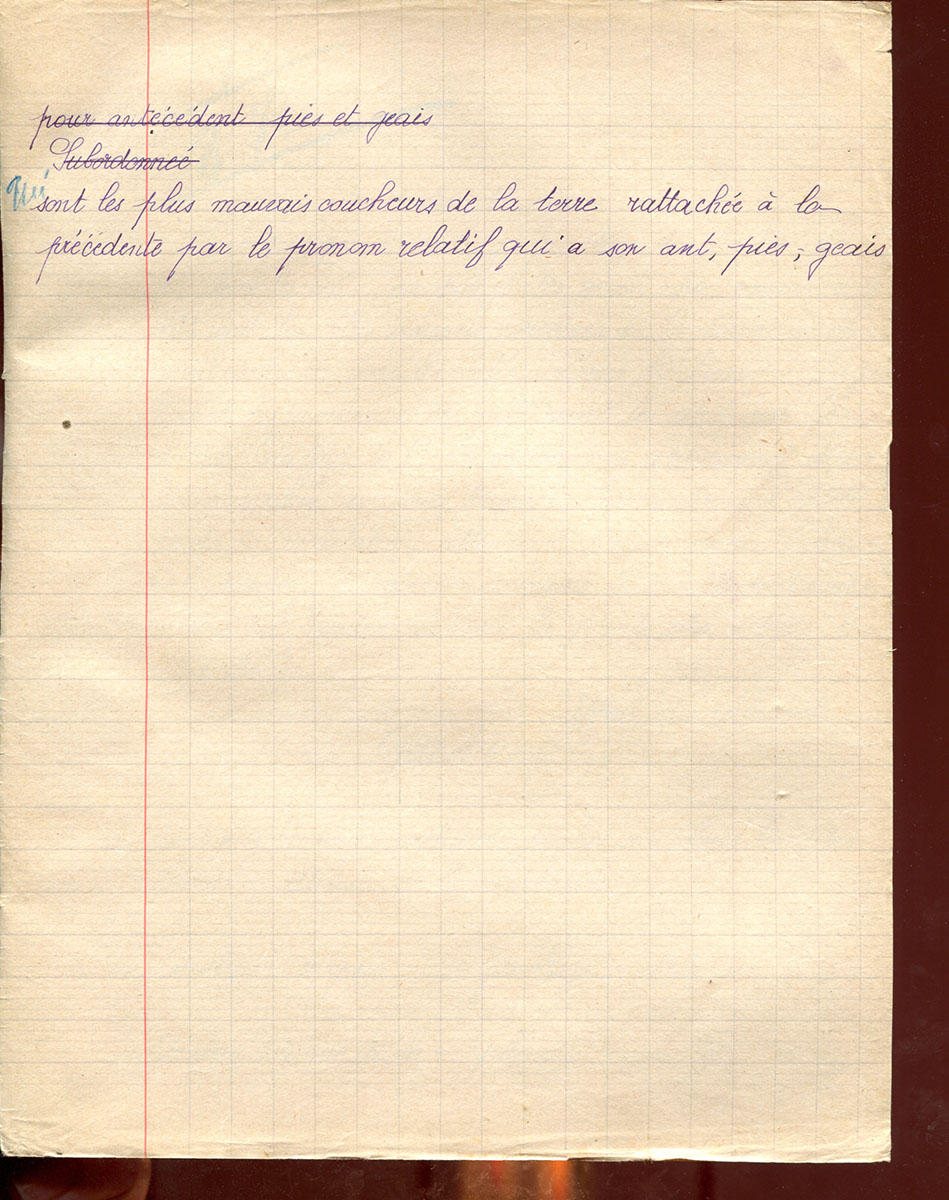 pour antécédent pies et geais
Subordonneé
Qui sont les plus mauvais coucheurs de la terre rattachée à la
précédente par le pronom relatif qui a son ant, pies, geais